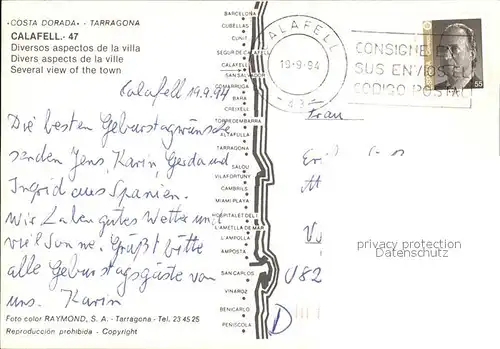 «COSTA DORADA» - TARRAGONA
CALAFELL.- 47
Diversos aspectos de la villa
Divers aspects de la ville
Several view of the town
Calafell 19.9.94
Die besten Geburtstagswünsche
senden Jens, Karin, Gerda und
Ingrid aus Spanien.
Wir haben gutes Wetter und
viel Sonne. Grüßt bitte
alle Geburtstagsgäste von
uns. Karin
Foto color RAYMOND, S. A. - Tarragona - Tel. 23 45 25
Reproducción prohibida - Copyright
BARCELONA
CUBELLAS
CUNIT
SEGUR DE CALAFELL
CALAFELL
SAN SALVADOR
COMARRUGA
BARA
CREIXELL
TORREDEMBARRA
ALTAFULLA
TARRAGONA
SALOU
VILAFORTUNY
CAMBRILS
MIAMI PLAYA
HOSPITALET DEL I.
L'AMETLLA DE MAR
L'AMPOLLA
AMPOSTA
SAN CARLOS
VINAROZ
BENICARLO
PEÑISCOLA
CALAFELL
19-9-94
CONSIGNE EN
SUS ENVIOS EL
CODIGO POSTAL
55
Frau
D
privacy protection
Datenschutz